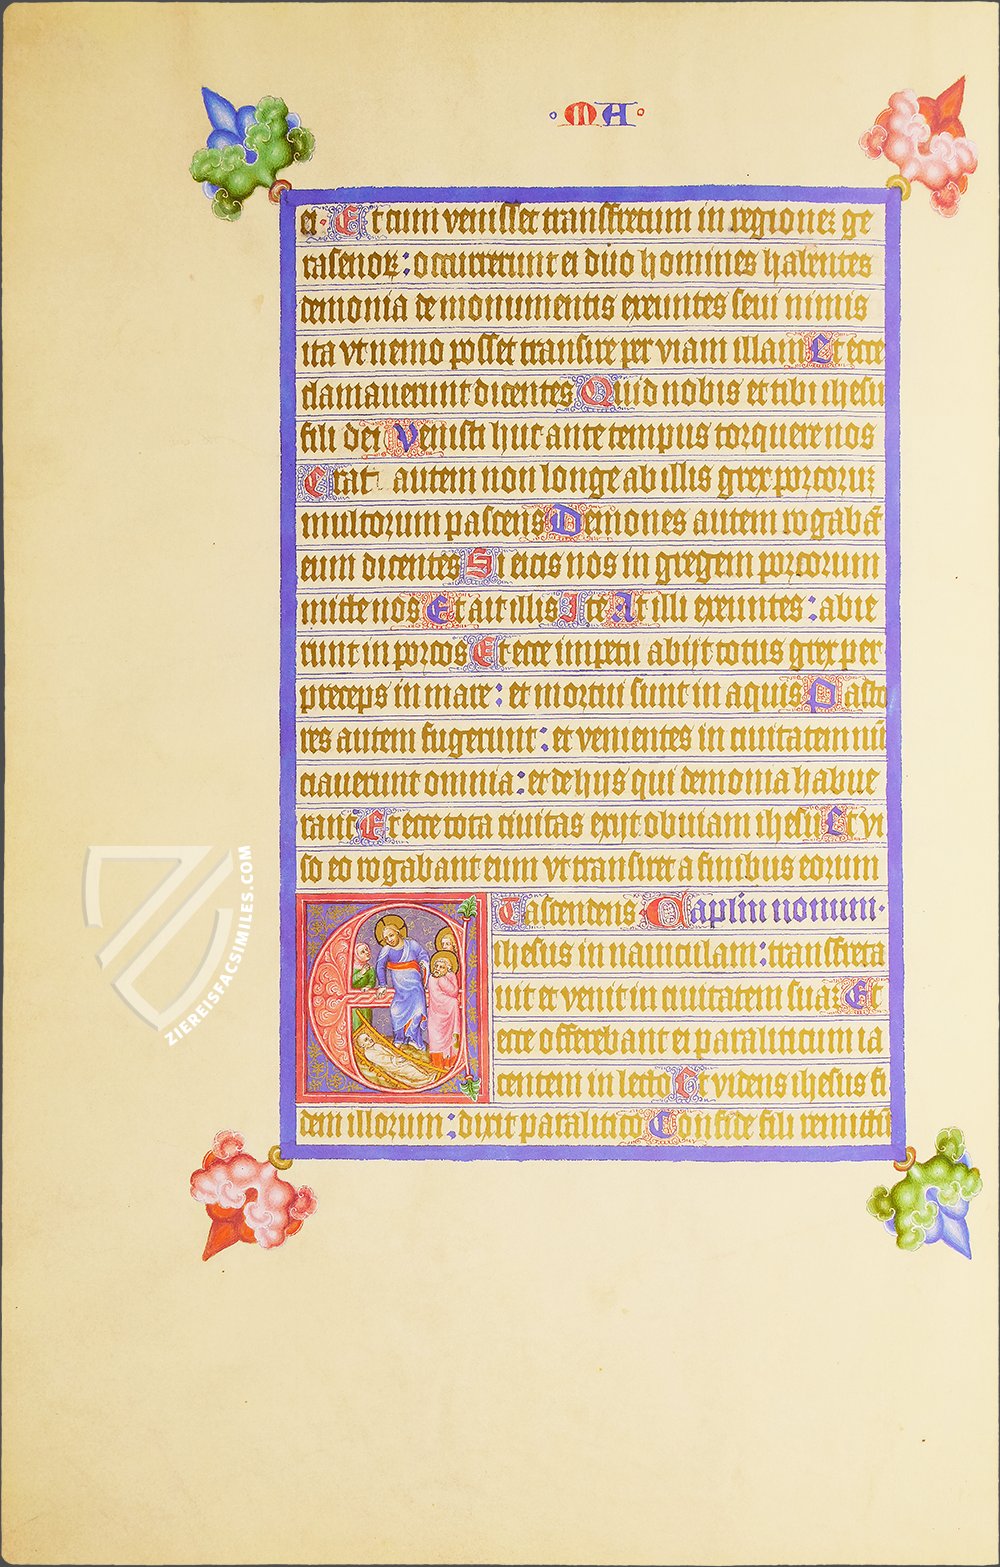 · MA ·
ei · Et cum venisset transfretum in regionez ge
rasenoꝝ : occurrerunt ei duo homines habentes
demonia de monumentis exeuntes seui nimis
ita vt nemo posset transire per viam illam Et ecce
clamauerunt dicentes Quid nobis et tibi ihesu
fili dei Venisti huc ante tempus torquere nos
Erat autem non longe ab illis grex porcoruz
multorum pascens Demones autem rogabāt
eum dicentes Si eicis nos in gregem porcorum
mitte nos Et ait illis Ite At illi exeuntes : abie
runt in porcos Et ecce impetu abijt totus grex per
preceps in mare : et mortui sunt in aquis Pasto
res autem fugerunt : et venientes in ciuitatem nū
ciauerunt omnia : et de hijs qui demonia habue
rant Et ecce tota ciuitas exijt obuiam ihesu Et vi
so eo rogabant eum vt transiret a finibus eorum
Et ascendens Caplm nonum ·
ihesus in nauiculam : transfreta
uit et venit in ciuitatem suaz Et
ecce offerebant ei paraliticum ia
centem in lecto Et videns ihesus fi
dem illorum : dixit paralitico Confide fili remittū
ZIEREISFACSIMILES.COM